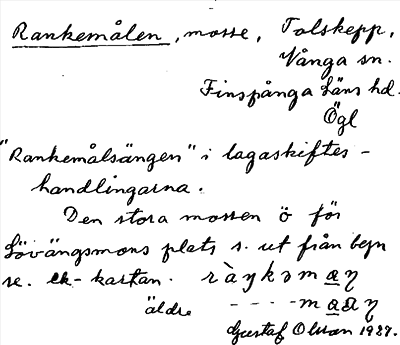 Rankemålen, mosse, Tolskepp,
Vånga sn.
Finspånga Läns hd.
Ögl
"Rankemålsängen" i lagaskiftes-
handlingarna.
Den stora mossen ö för
Lövängsmons plats s. ut från byn
se. ek-kartan. ràŋkəmaŋ
äldre - - - -maaŋ
Gustaf Olsson 1927.